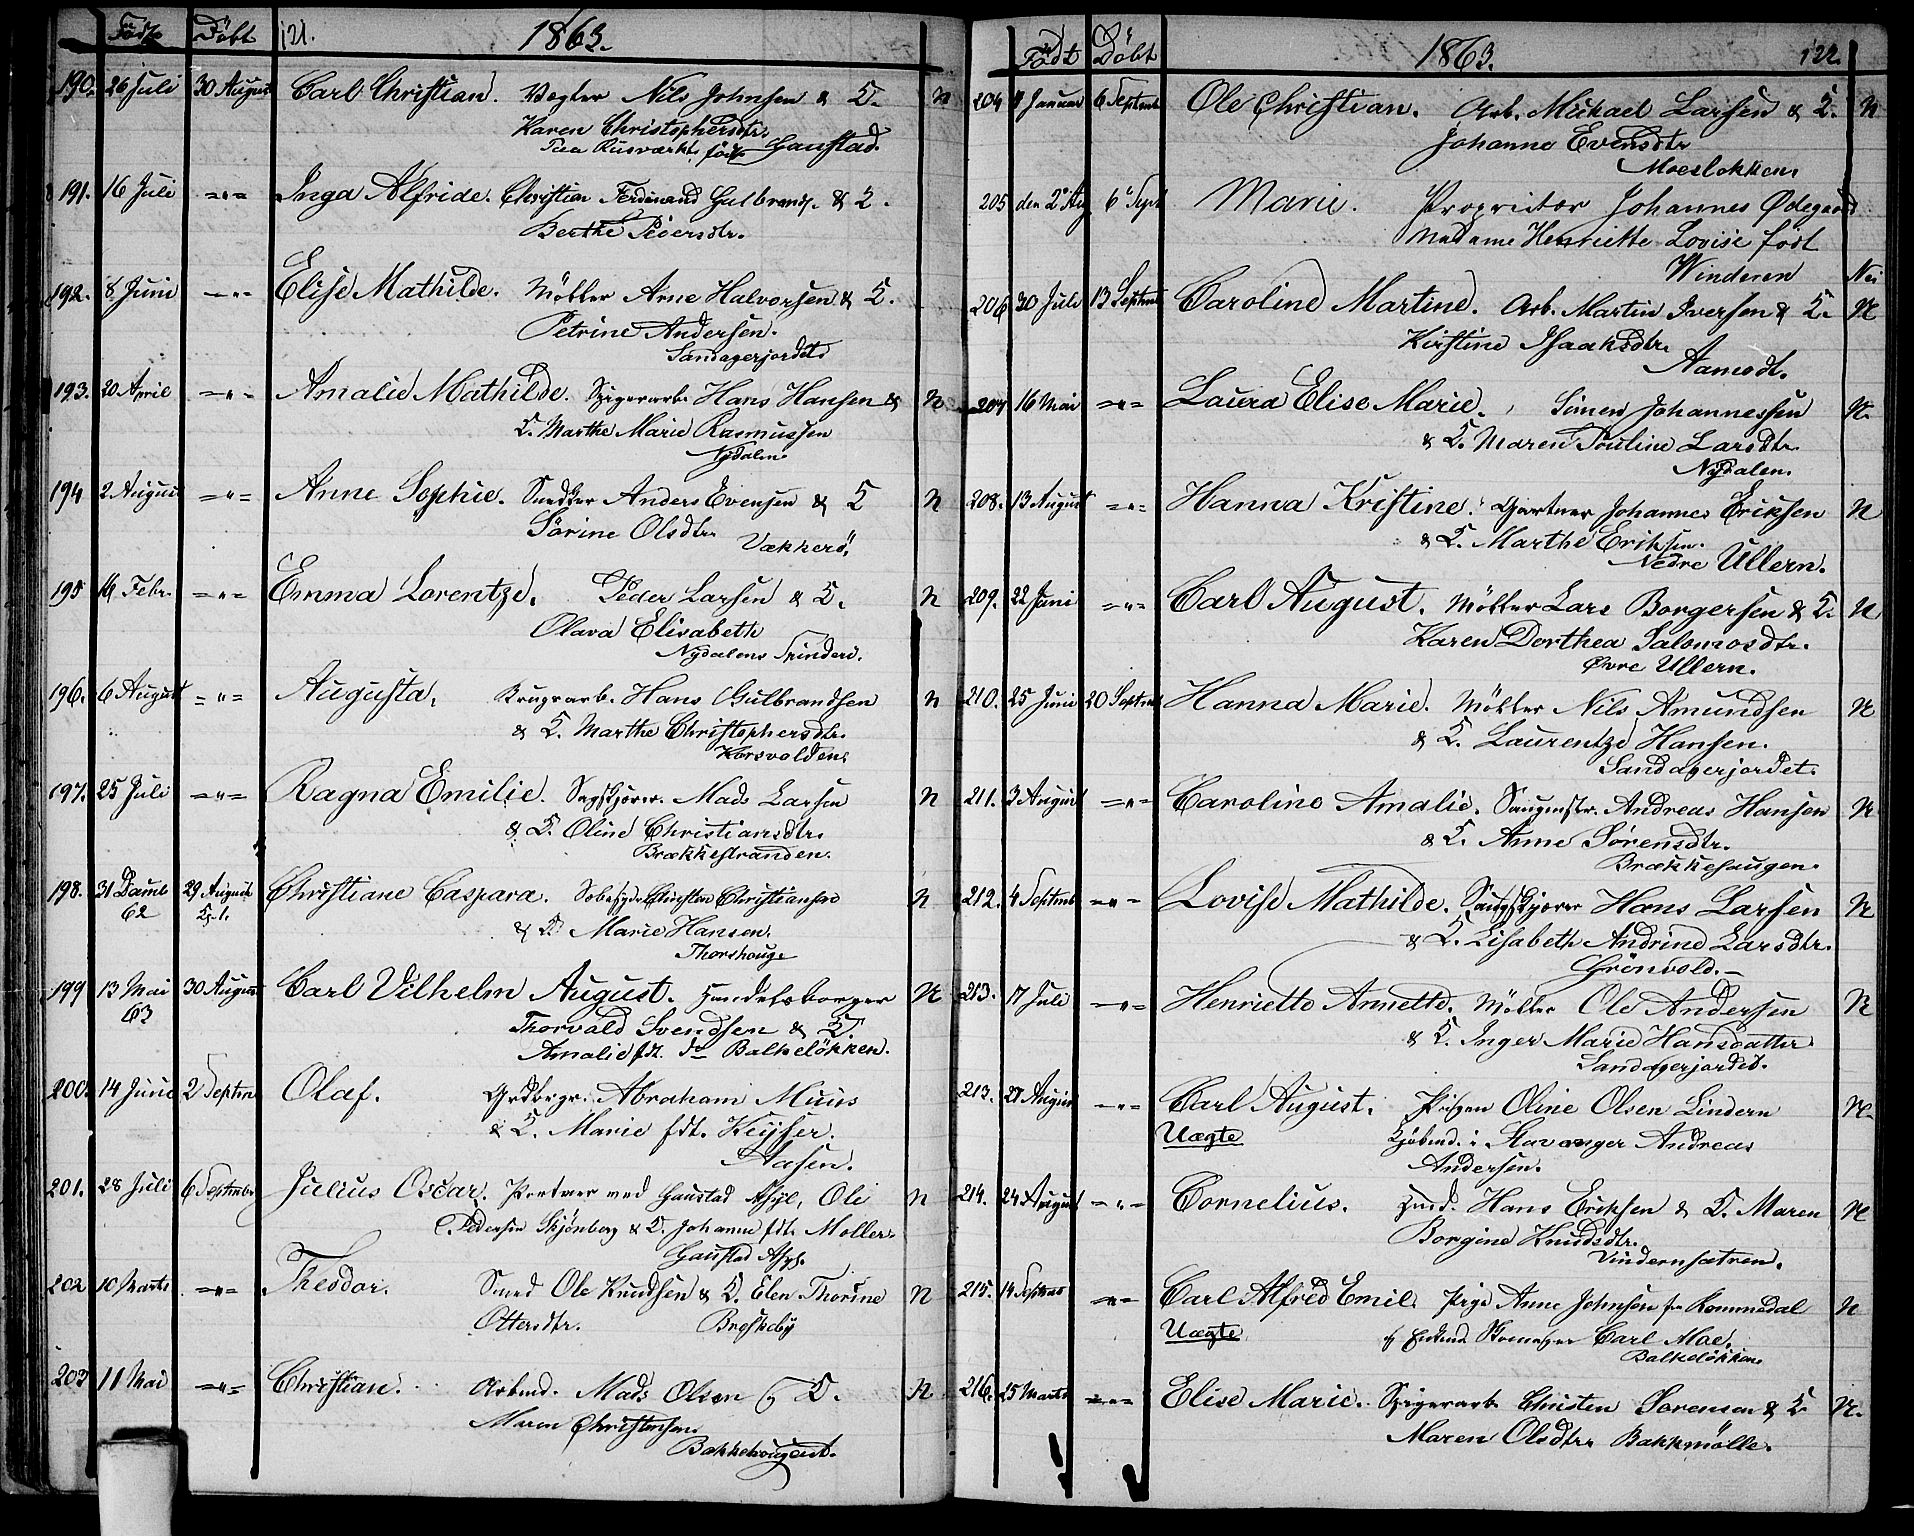 Födt Döbt 121. 1863.
190. 26 Juli 30 August Carl Christian. Vægter Nils Johnsen & K. N
Karen Christophersdtr.
födt Gaustad.
191. 16 Juli -"- Inga Alfride. Christian Ferdinand Gulbrands. & K.
Berthe Pedersdtr.
192. 8 Juni -"- Elise Mathilde. Möbler Arne Halvorsen & K.
Petrine Andersen.
Sandagerjordet
193. 20 April -"- Amalie Mathilde. Spigerarb. Hans Hansen & N
K. Marthe Marie Rasmussen
Nydalen.
194 2 August -"- Anne Sophie. Snedker Anders Evensen & K N
Sörine Olsdtr. Vækkerö
195 16 Febr. -"- Emma Lorentze. Peder Larsen & K. N
Olava Elisabeth
Nydalens Spinderi.
196. 6 August -"- Augusta. Brugsarb. Hans Gulbrandsen N
& K. Marthe Christophersdtr.
Korsvolden.
197. 25 Juli -"- Ragna Emilie. Sagskjærer. Mads Larsen N
& K. Oline Christiansdtr.
Brækkestranden.
198. 31 Decemb 62 29 August Christiane Caspara. Christen Christiansen N
& K. Marie Hansen.
Thorshaug
199 13 Mai 63 30 August Carl Vilhelm August. Handelsborger N
Thorvald Svendsen & K.
Amalie fdt. do Balkelökken.
200. 14 Juni 2 Septm Olaf. Grdbrgr. Abraham Muus
& K. Marie fdt. Keyser.
Aasen.
201. 28 Juli 6 Septembr Julius Oscar. Portner ved Gaustad Asyl, Ole N
Pedersen Skjönberg & K. Johanne fdt. Møller.
Gaustad Asyl.
202 10 Marts -"- Theodor. Smed Ole Knudsen & K. Elen Thorine N
Ottersdtr. Briskeby
203 11 Mai -"- Christian. Arbmd. Mads Olsen & K. N
Maren Christensen.
Bakkehougen.
Födt Döbt 1863. 122.
204 9 Januar 6 Septemb Ole Christian. Arb. Mickael Larsen & K. N
Johanne Evensdtr
Moeslokken.
205 den 2 Aug. 6 Sept Marie. Proprietær Johannes Ødegaard
Madame Henriette Lovise födt
Winderen Nei
206 30 Juli 13 Septmb Caroline Martine. Arb. Martin Iversen & K. N
Kirstine Isaaksdtr.
Aamodt.
207 16 Mai -"- Laura Elise Marie. Simen Johannessen N.
& K. Maren Pouline Larsdtr.
Nydalen.
208. 13 August -"- Hanna Kristine. Gartner Johannes Eriksen N
& K. Marthe Eriksen.
Nedre Ullern.
209. 22 Juni -"- Carl August. Möbler Lars Borgersen & K. N
Karen Dorthea Salomosdtr.
Øvre Ullern.
210. 25 Juni 20 Septmb Hanna Marie. Möbler Nils Amundsen N
& K. Laurentze Hansen.
Sandagerjordet.
211. 3 August -"- Caroline Amalie. Saugmstr. Andreas Hansen N
& K. Anne Sörensdtr.
Brækkehaugen.
212. 4 Septmb -"- Lovise Mathilde. Saugskjærer Hans Larsen N
& K. Lisabeth Andrine Larsdtr.
Grönvold.
213. 17 Juli -"- Henriette Annette. Möbler Ole Andersen N
& K. Inger Marie Hansdatter
Sandagerjordet.
213. 27 August -"- Carl August. Pigen Oline Olsen Lindern N
Uægte Kjöbmd. i Stavanger Andreas
Andersen.
214. 24 August -"- Cornelius. Hans Eriksen & K. Maren N
Borgine Knudsdtr.
Vindernsætren.
215. 14 Septmb -"- Carl Alfred Emil. Pige Anne Johnsen fra Rommedal N
Uægte Carl Moe.
Balkelökken.
216. 25 Marts -"- Elise Marie. Spigerarb. Christen Sorensen & K N.
Maren Olsdtr. Bakkmölle.